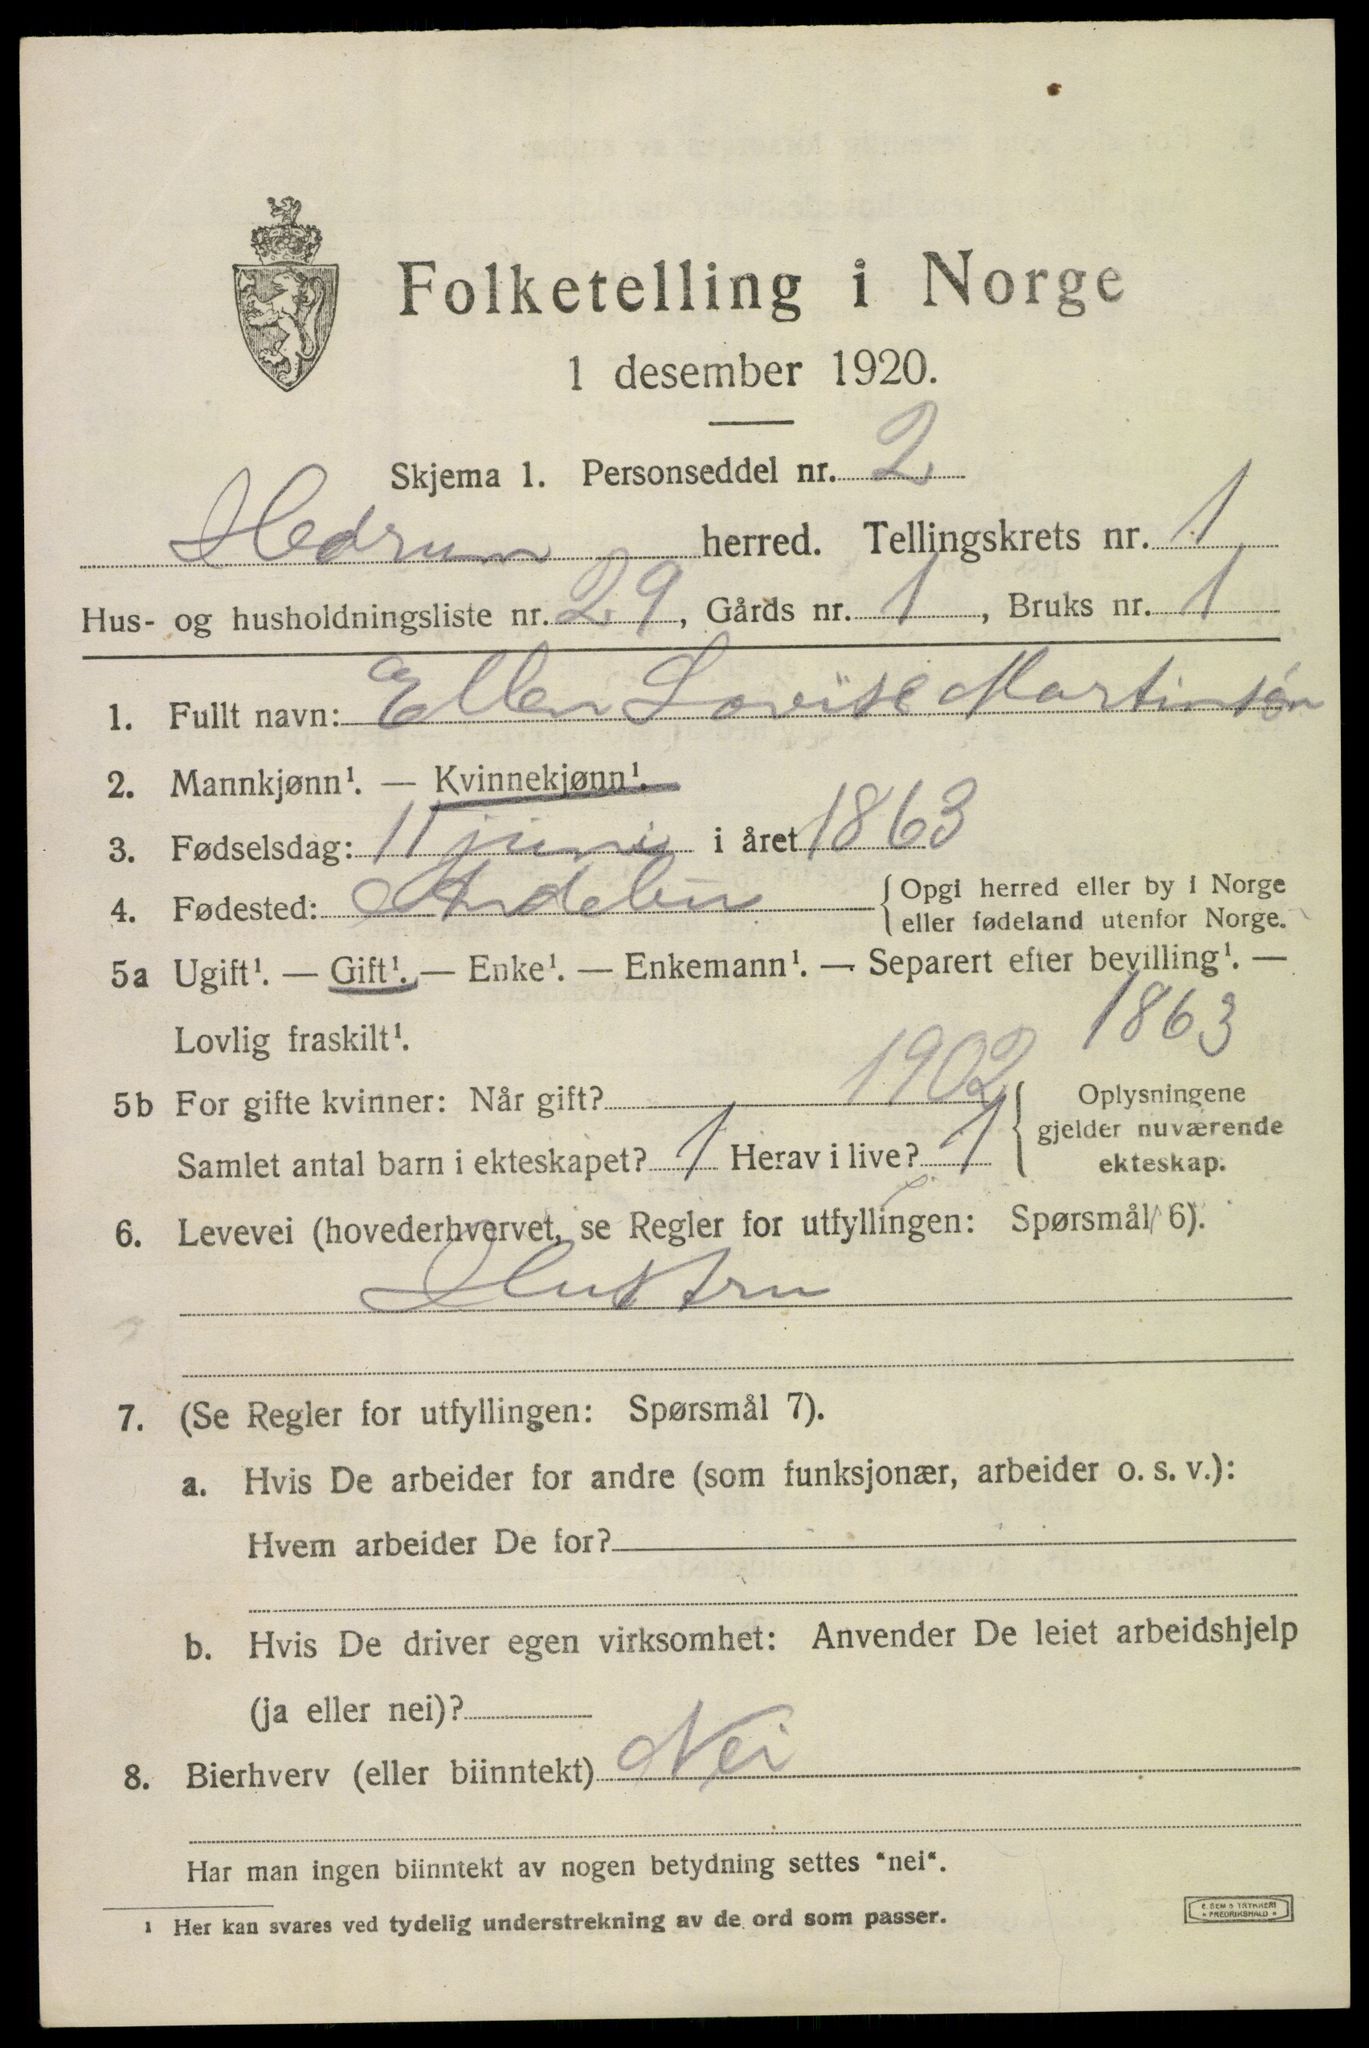 Folketelling i Norge
1 desember 1920.
Skjema 1. Personseddel nr. 2
Hedrum herred. Tellingskrets nr. 1
Hus- og husholdningsliste nr. 29, Gårds nr. 1, Bruks nr. 1
1. Fullt navn: Ellen Lovise Martinsen
2. Mannkjønn¹. — Kvinnekjønn¹.
3. Fødselsdag: 11 juni i året 1863
4. Fødested: Andebu {Opgi herred eller by i Norge
eller fødeland utenfor Norge.
5a Ugift¹. — Gift¹. — Enke¹. — Enkemann¹. — Separert efter bevilling¹. —
Lovlig fraskilt¹. 1863
5b For gifte kvinner: Når gift? 1902
Samlet antal barn i ekteskapet? 1 Herav i live? 1
{Oplysningene
gjelder nuværende
ekteskap.
6. Levevei (hovederhvervet, se Regler for utfyllingen: Spørsmål 6).
Hustru
7. (Se Regler for utfyllingen: Spørsmål 7).
a. Hvis De arbeider for andre (som funksjonær, arbeider o. s. v.):
Hvem arbeider De for?
b. Hvis De driver egen virksomhet: Anvender De leiet arbeidshjelp
(ja eller nei)?
8. Bierhverv (eller biinntekt) Nei
Har man ingen biinntekt av nogen betydning settes "nei".
¹ Her kan svares ved tydelig understrekning av de ord som passer.
E. SEM S TRYKKERI
* FREDRIKSHALD *